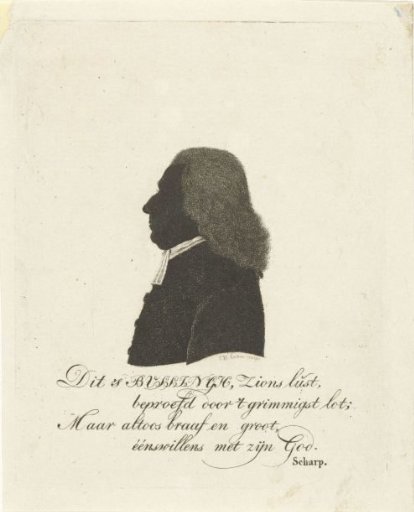 Dit is BUSSINGH, Zions lust,
beproefd door 't grimmigst lot;
Maar altoos braaf en groot,
éénswillens met zijn God.
Scharp.